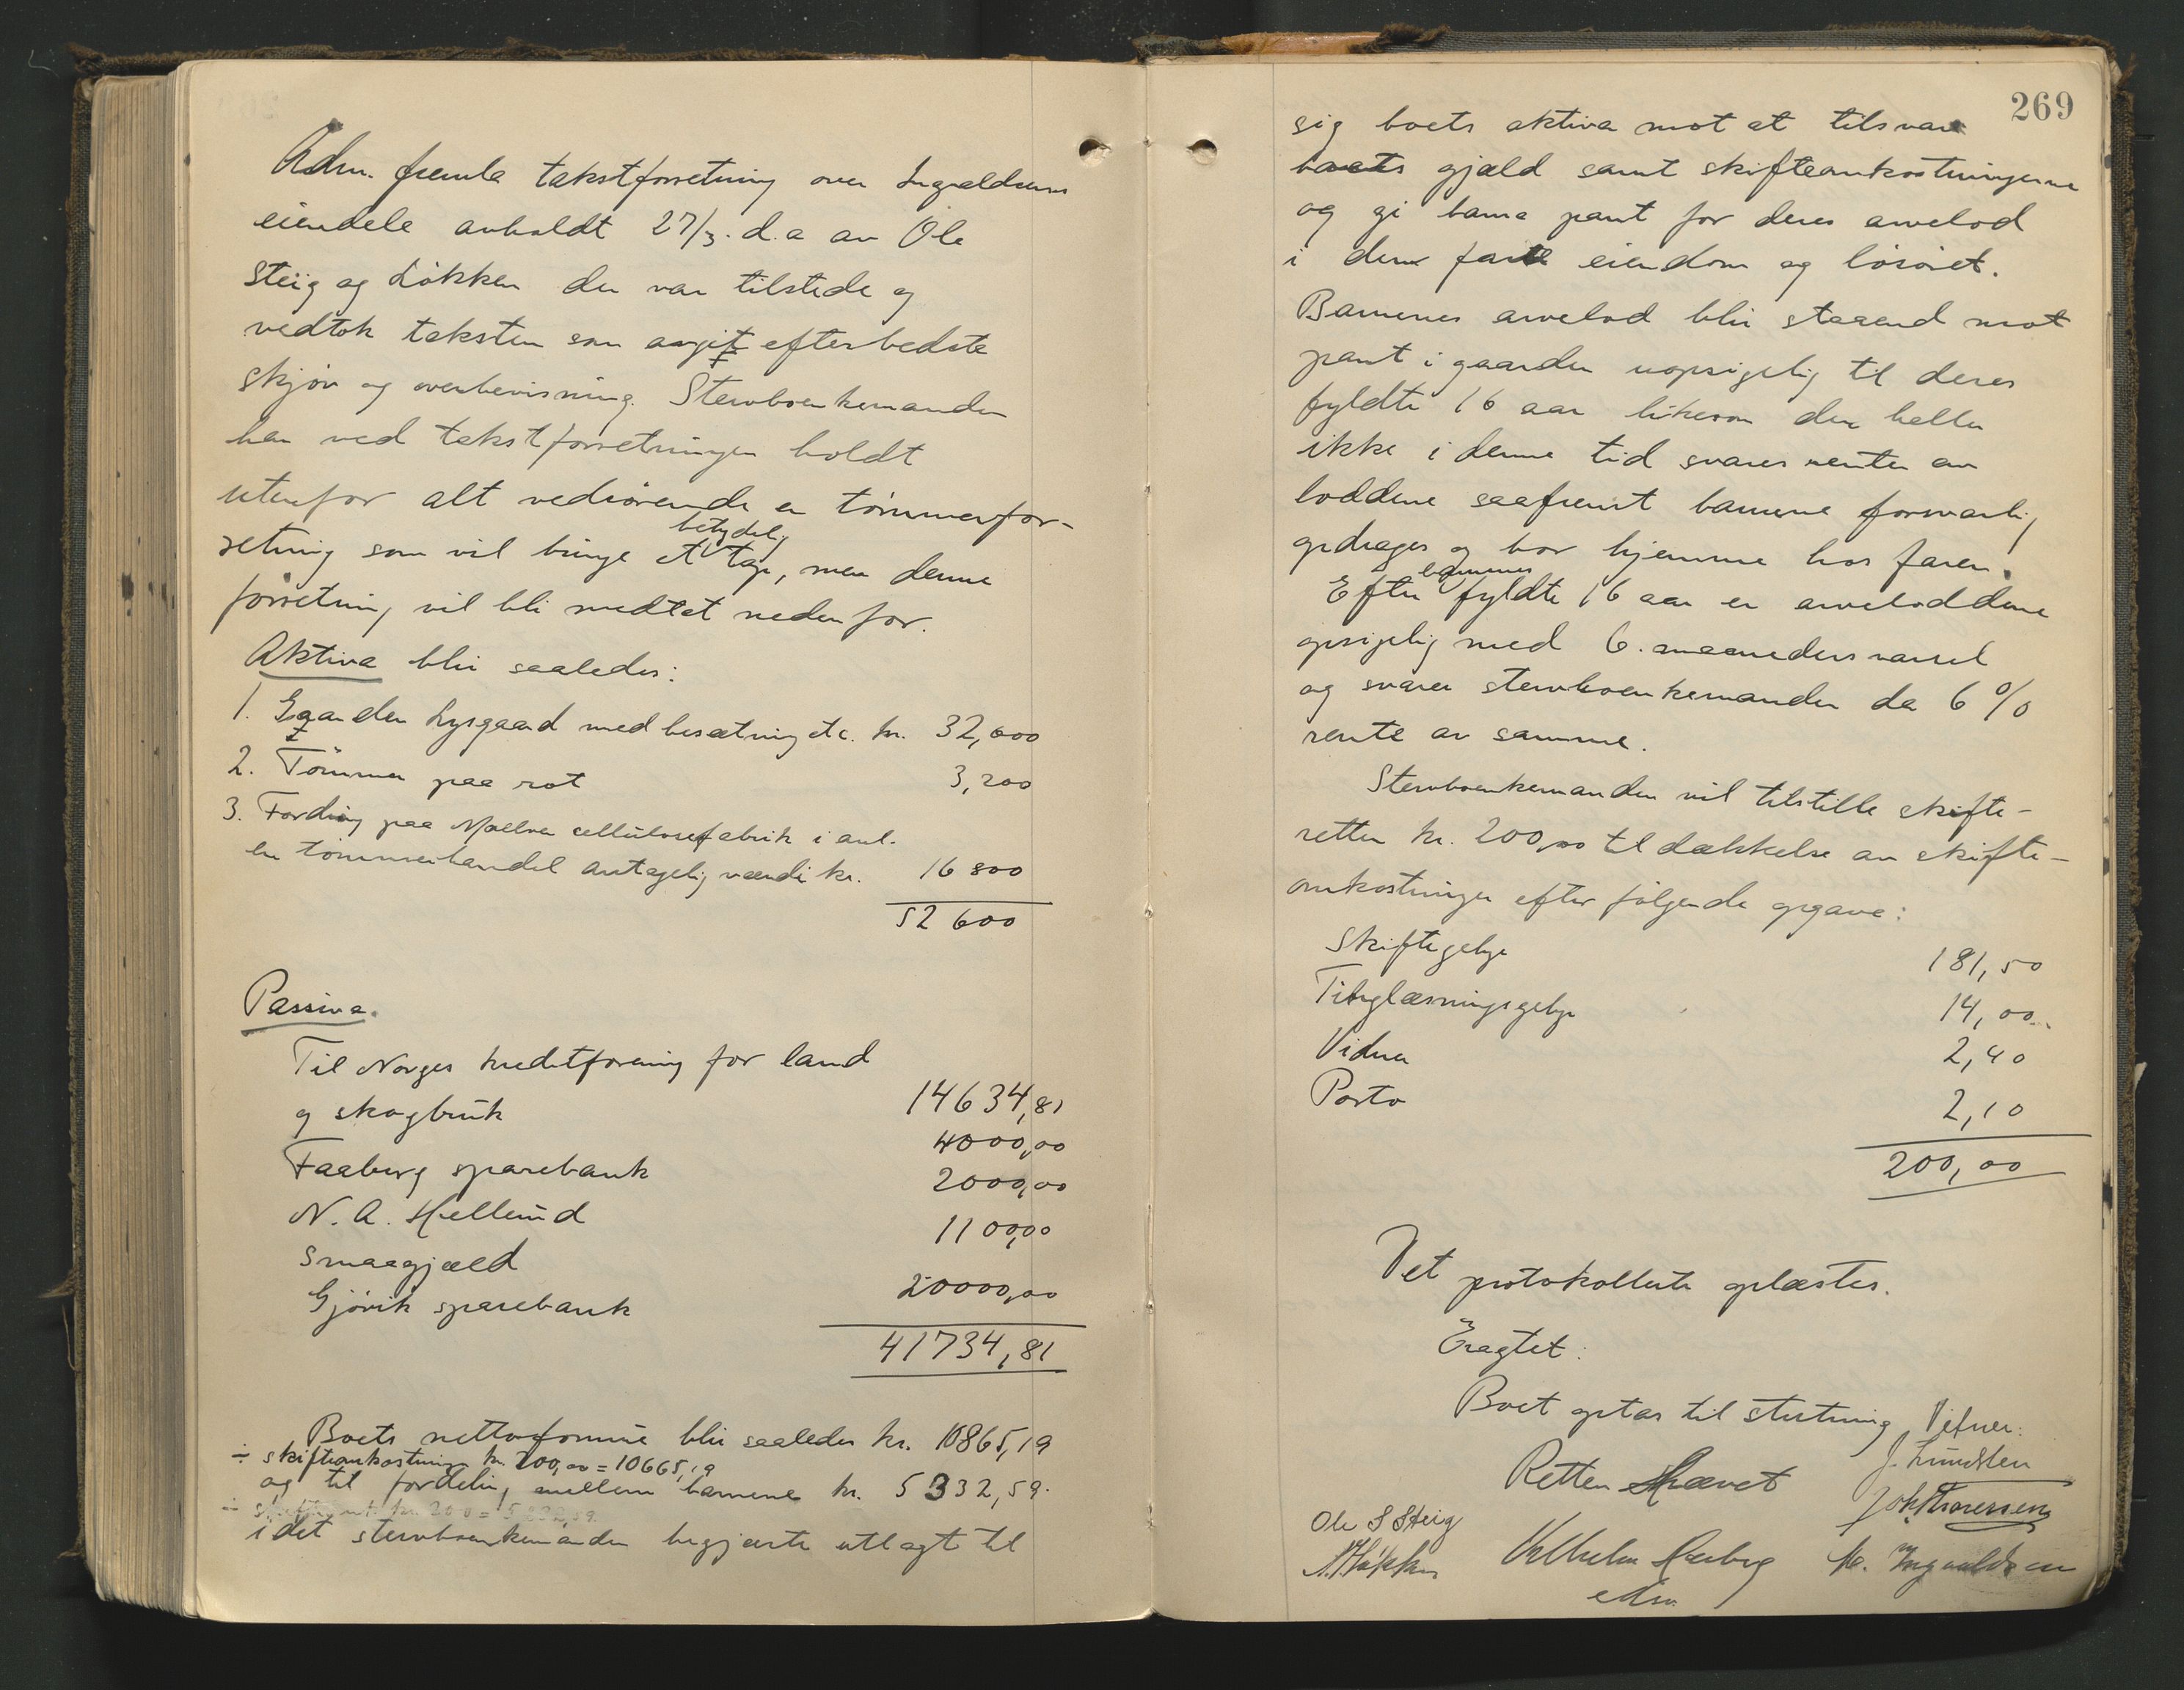 Adm. fremla takstforretning over Ingvaldsens
eiendele avholdt 27/3. d.a av Ole
Steig og Løkken der var tilstede og
vedtok taksten som avgit efter bedste
skjøn og overbevisning. Stervboenkemanden
har ved takstforretningen holdt
utenfor alt vedrørende en tømmerfor-
betydelig
retning som vil bringe et tap, men denne
forretning vil bli medtat nedenfor.
Aktiva blir saaledes:
1. Gaarden Lysgaard med besætning etc. kr. 32,600
2. Tømmer paa rot 3,200
3. Fordring paa Mjellem cellulosefabrik i anl.
en tømmerhandel antagelig værdi kr. 16 800
52 600
Passiva.
Til Norges kreditforening for land
og skogbruk 14634,81
Faaberg sparebank 4000,00
N. A. Hellerud 2000,00
Smaagjæld 1100,00
Gjøvik sparebank 20000,00
41734,81
Boets nettoformue blir saaledes kr. 10865,19
÷ skifteomkostninger kr. 200,00 = 10665,19
og til fordeling mellem barnene kr. 5332,59.
idet stervboenkemanden begjærte utlagt til
269
sig boets aktiva mot at tilsvare
boets gjæld samt skifteomkostningerne
og gi barna pant for deres arvelod
i den faste eiendom og løsøret.
Barnenes arvelod blir staaend mot
pant i gaarden uopsigelig til deres
fyldte 16 aar likesom der heller
ikke i denne tid svares renter av
loddene saafremt barnene forsvarlig
opdrages og bor hjemme hos faren.
barnenes
Efter fyldte 16 aar er arveloddene
opsigelig med 6. maaneders varsel
og svarer stervboenkemanden da 6 %
rente av samme.
Stervboenkemanden vil tilstille skifte-
retten kr. 200,00 til dækkelse av skifte-
omkostninger efter følgende opgave:
Skiftegebyr 181,50
Tinglæsningsgebyr 14,00
Vidner 2,40
Porto 2,10
200,00
Det protokollerte oplæstes.
Eragtet:
Boet optas til slutning
Retten hævet
Vitner:
J. Lundsten
Joh Thoressen
Ole S Steig
Løkken
Vilhelm
adm.
Ingvaldsen